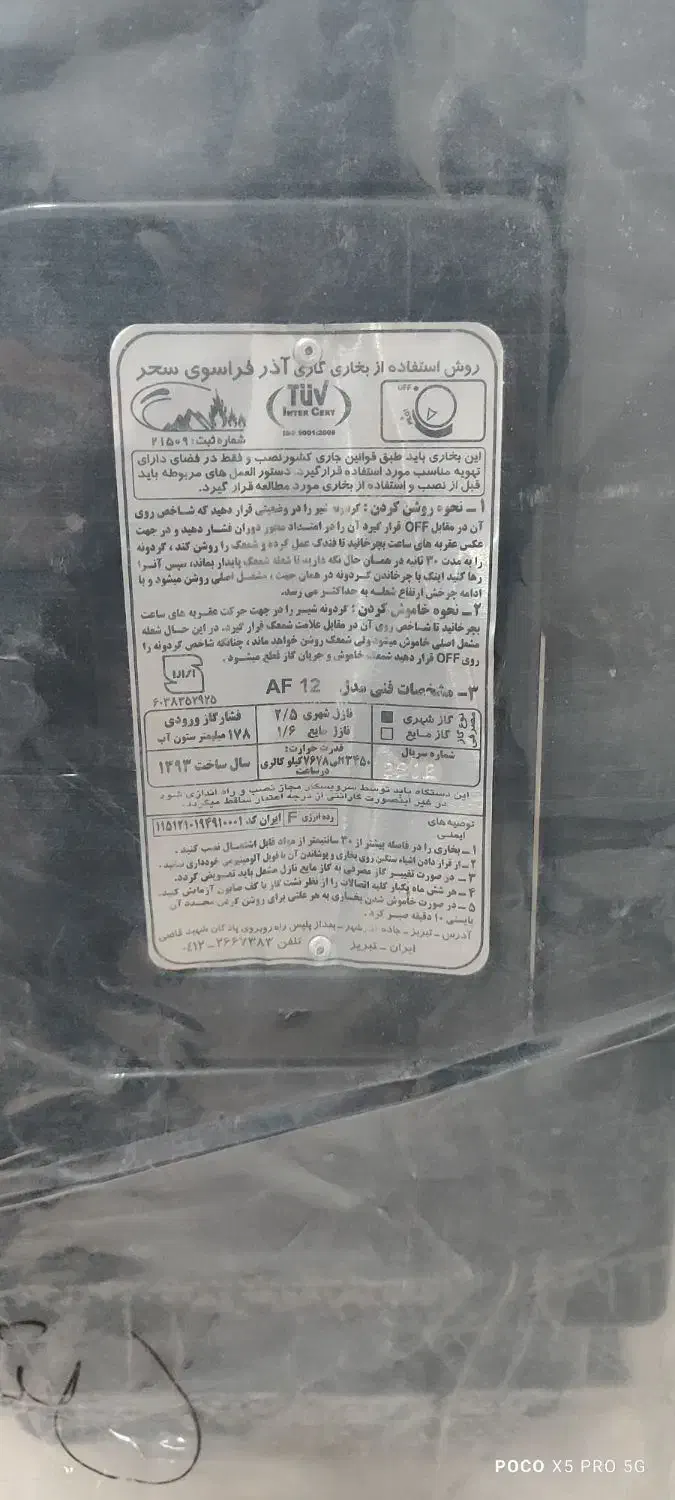 روش استفاده از بخاری گازی آذر فراسوی سحر
OFF
TÜV
INTER CERT
ISO 9001:2008
شماره ثبت: ۲۱۵۰۹
این بخاری باید طبق قوانین جاری کشور نصب و فقط در فضای دارای
تهویه مناسب مورد استفاده قرار گیرد. دستور العمل های مربوطه باید
قبل از نصب و استفاده از بخاری مورد مطالعه قرار گیرد.
۱ـ نحوه روشن کردن: گردونه شیر را در وضعیتی قرار دهید که شاخص روی
آن در مقابل OFF قرار گیرد آن را در امتداد محور دوران فشار دهید و در جهت
عکس عقربه های ساعت بچرخانید تا فندک عمل کرده و شمعک را روشن کند، گردونه
را به مدت ۳۰ ثانیه در همان حال نگه دارید تا شعله شمعک پایدار بماند، سپس آنرا
رها کنید اینک با چرخاندن گردونه در همان جهت، مشعل اصلی روشن میشود و با
ادامه چرخش ارتفاع شعله به حداکثر می رسد.
۲ـ نحوه خاموش کردن: گردونه شیر را در جهت حرکت عقربه های ساعت
بچرخانید تا شاخص روی آن در مقابل علامت شمعک قرار گیرد. در این حال شعله
مشعل اصلی خاموش میشود ولی شمعک روشن خواهد ماند، چنانکه شاخص گردونه را
روی OFF قرار دهید شمعک خاموش و جریان گاز قطع میشود.
۳ـ مشخصات فنی مدل AF 12
۶۰۳۸۳۵۲۹۲۵
نوع گاز مصرفی
گاز شهری
گاز مایع
نازل شهری ۲/۵
نازل مایع ۱/۶
فشار گاز ورودی
۱۷۸ میلیمتر ستون آب
شماره سریال
قدرت حرارت:
۲۳۴۵۰الی۷۶۷۸کیلو کالری
در ساعت
سال ساخت ۱۳۹۳
این دستگاه باید توسط سرویسکار مجاز نصب و راه اندازی شود
در غیر اینصورت گارانتی از درجه اعتبار ساقط میگردد.
توصیه های
ایمنی
رده انرژی F
ایران کد ۱۱۵۱۲۱۰۱۹۴۹۱۰۰۰۱
۱ـ بخاری را در فاصله بیشتر از ۳۰ سانتیمتر از مواد قابل اشتعال نصب کنید.
۲ـ از قرار دادن اشیاء سنگین روی بخاری و پوشاندن آن با فویل آلومینیومی خودداری نمایید.
۳ـ در صورت تغییر گاز مصرفی به گاز مایع نازل مشعل باید تعویض گردد.
۴ـ هر شش ماه یکبار کلیه اتصالات را از نظر نشت گاز با کف صابون آزمایش کنید.
۵ـ در صورت خاموش شدن بخاری به هر علتی برای روشن کردن مجدد آن
بایستی ۱۰ دقیقه صبر کرد.
آدرس ـ تبریز ـ جاده شهر ـ بعداز پلیس راه روبروی پادگان شهید قاضی
ایران ـ تبریز تلفن ۳۶۶۷۳۸۳ـ۰۴۱۲
POCO X5 PRO 5G